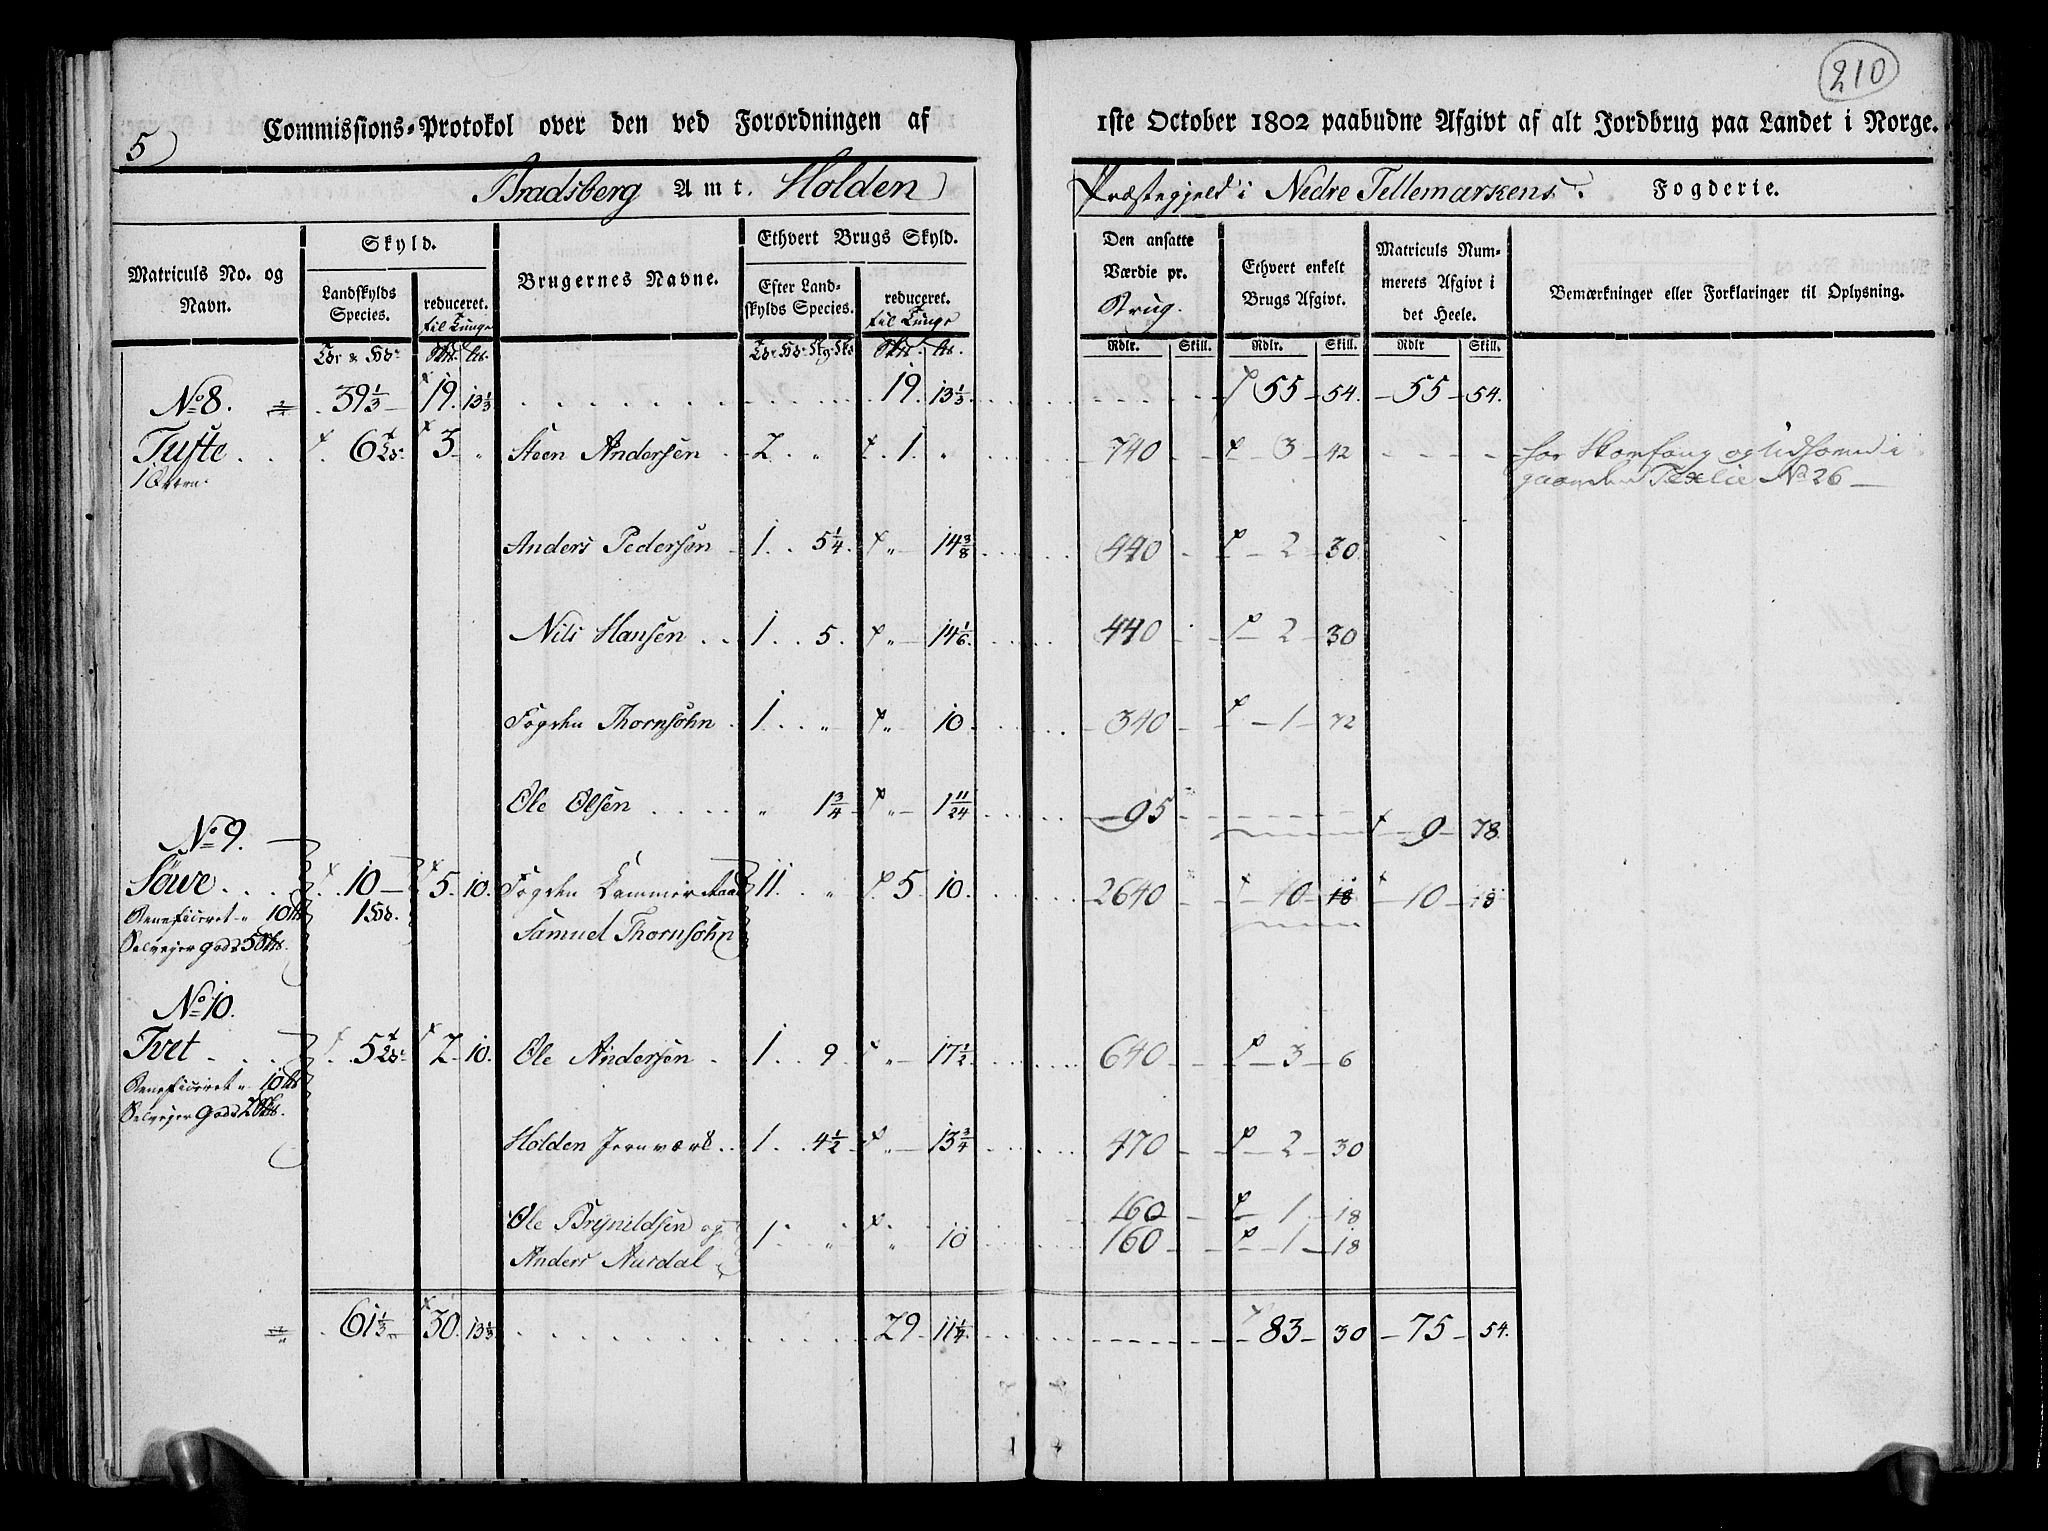 210
5)
Commissions-Protokol over den ved Forordningen af 1ste October 1802 paabudne Afgivt af alt Jordbrug paa Landet i Norge.
Bradsberg Amt. Holden Præstegjeld i Nedre Tellemarkens Fogderie.
Matriculs No. og Navn.
Skyld.
Landskylds Species.
reduceret. til Tunge
Brugernes Navne.
Ethvert Brugs Skyld.
Efter Landskylds Species.
reduceret. til Tunge
Den ansatte Værdie pr. Brug.
Ethvert enkelt Brugs Afgivt.
Matriculs Nummerets Afgivt i det Heele.
Bemærkninger eller Forklaringer til Oplysning.
Rdlr. Skill. Rdlr. Skill. Rdlr Skill.
No 8. 39 1/3 19. 13 1/3 19. 13 1/3 55 54. 55 54.
Tufte 6 3 Steen Andersen 2 " 1. " 740 3 42
No 26
Anders Pedersen 1 5 1/4 " 14 3/8 440 2 30
Nils Hansen 1 5 " 14 1/6 440 2 30
Fogden Thornsohn 1 " " 10 340 1 72
Ole Olsen " 1 3/4 " 1 11/24 95
9 78
No 9.
Söwe 10 5 10. Fogden 11 " 5 10. 2640 10 18 10 18
Beneficeret
Selveyer gods
Samuel Thornsohn
No 10.
Tvet 5 2 10. Ole Andersen 1 9 " 17 1/2 640 3 6
Beneficeret
Selveyer Gods
Holden Jernværk 1 4 1/2 " 13 3/4 470 2 30
Ole Brynildsen og 160 1 18
Anders Aurdal 1 " " 10 160 1 18
61 1/3 30. 13 1/3 29 11 1/4 83 30 75 54.